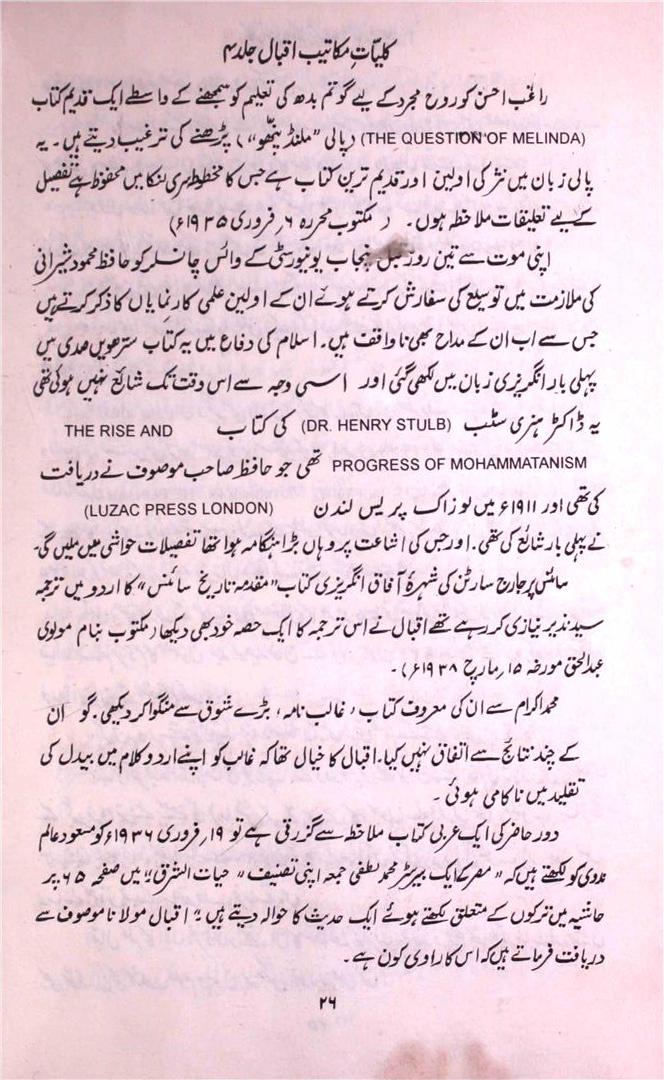 کلیّاتِ مکاتیب اقبال جلد ۴
راغب احسن کو روح مجرد کے لیے گوتم بدھ کی تعلیم کو سمجھنے کے واسطے ایک قدیم کتاب
(THE QUESTION OF MELINDA) (پالی "ملنڈ پنھو") پڑھنے کی ترغیب دیتے ہیں۔ یہ
پالی زبان میں نثر کی اولین اور قدیم ترین کتاب ہے جس کا مخطوطہ سری لنکا میں محفوظ ہے تفصیل
کے لیے تعلیقات ملاحظہ ہوں۔ (مکتوب محررہ ۶ر فروری ۱۹۳۵ء)
اپنی موت سے تین روز قبل پنجاب یونیورسٹی کے وائس چانسلر کو حافظ محمود شیرانی
کی ملازمت میں توسیع کی سفارش کرتے ہوئے ان کے اولین علمی کارنمایاں کا ذکر کرتے ہیں
جس سے اب ان کے مداح بھی ناواقف ہیں۔ اسلام کی دفاع میں یہ کتاب سترھویں صدی میں
پہلی بار انگریزی زبان میں لکھی گئی اور اسی وجہ سے اس وقت تک شائع نہیں ہوئی تھی
یہ ڈاکٹر ہنری سٹب (DR. HENRY STULB) کی کتاب THE RISE AND
PROGRESS OF MOHAMMATANISM تھی جو حافظ صاحب موصوف نے دریافت
کی تھی اور ۱۹۱۱ء میں لوزاک پریس لندن (LUZAC PRESS LONDON)
نے پہلی بار شائع کی تھی۔ اور جس کی اشاعت پر وہاں بڑا ہنگامہ ہوا تھا تفصیلات حواشی میں ملیں گی۔
سائنس پر جارج سارٹن کی شہرۂ آفاق انگریزی کتاب "مقدمۂ تاریخ سائنس" کا اردو میں ترجمہ
سید نذیر نیازی کر رہے تھے اقبال نے اس ترجمہ کا ایک حصہ خود بھی دیکھا (مکتوب بنام مولوی
عبدالحق مورخہ ۱۵ر مارچ ۱۹۳۸ء)۔
محمد اکرام سے ان کی معروف کتاب، غالب نامہ، بڑے شوق سے منگوا کر دیکھی۔ گو ان
کے چند نتائج سے اتفاق نہیں کیا۔ اقبال کا خیال تھا کہ غالب کو اپنے اردو کلام میں بیدل کی
تقلید میں ناکامی ہوئی۔
دور حاضر کی ایک عربی کتاب ملاحظہ سے گزرتی ہے تو ۱۹ر فروری ۱۹۳۶ء کو مسعود عالم
ندوی کو لکھتے ہیں کہ "مصر کے ایک بیرسٹر محمد لطفی جمعہ اپنی تصنیف "حیات الشرق"؛ میں صفحہ ۶۵ پر
حاشیہ میں ترکوں کے متعلق لکھتے ہوئے ایک حدیث کا حوالہ دیتے ہیں"؛ اقبال مولانا موصوف سے
دریافت فرماتے ہیں کہ اس کا راوی کون ہے۔
۲۶